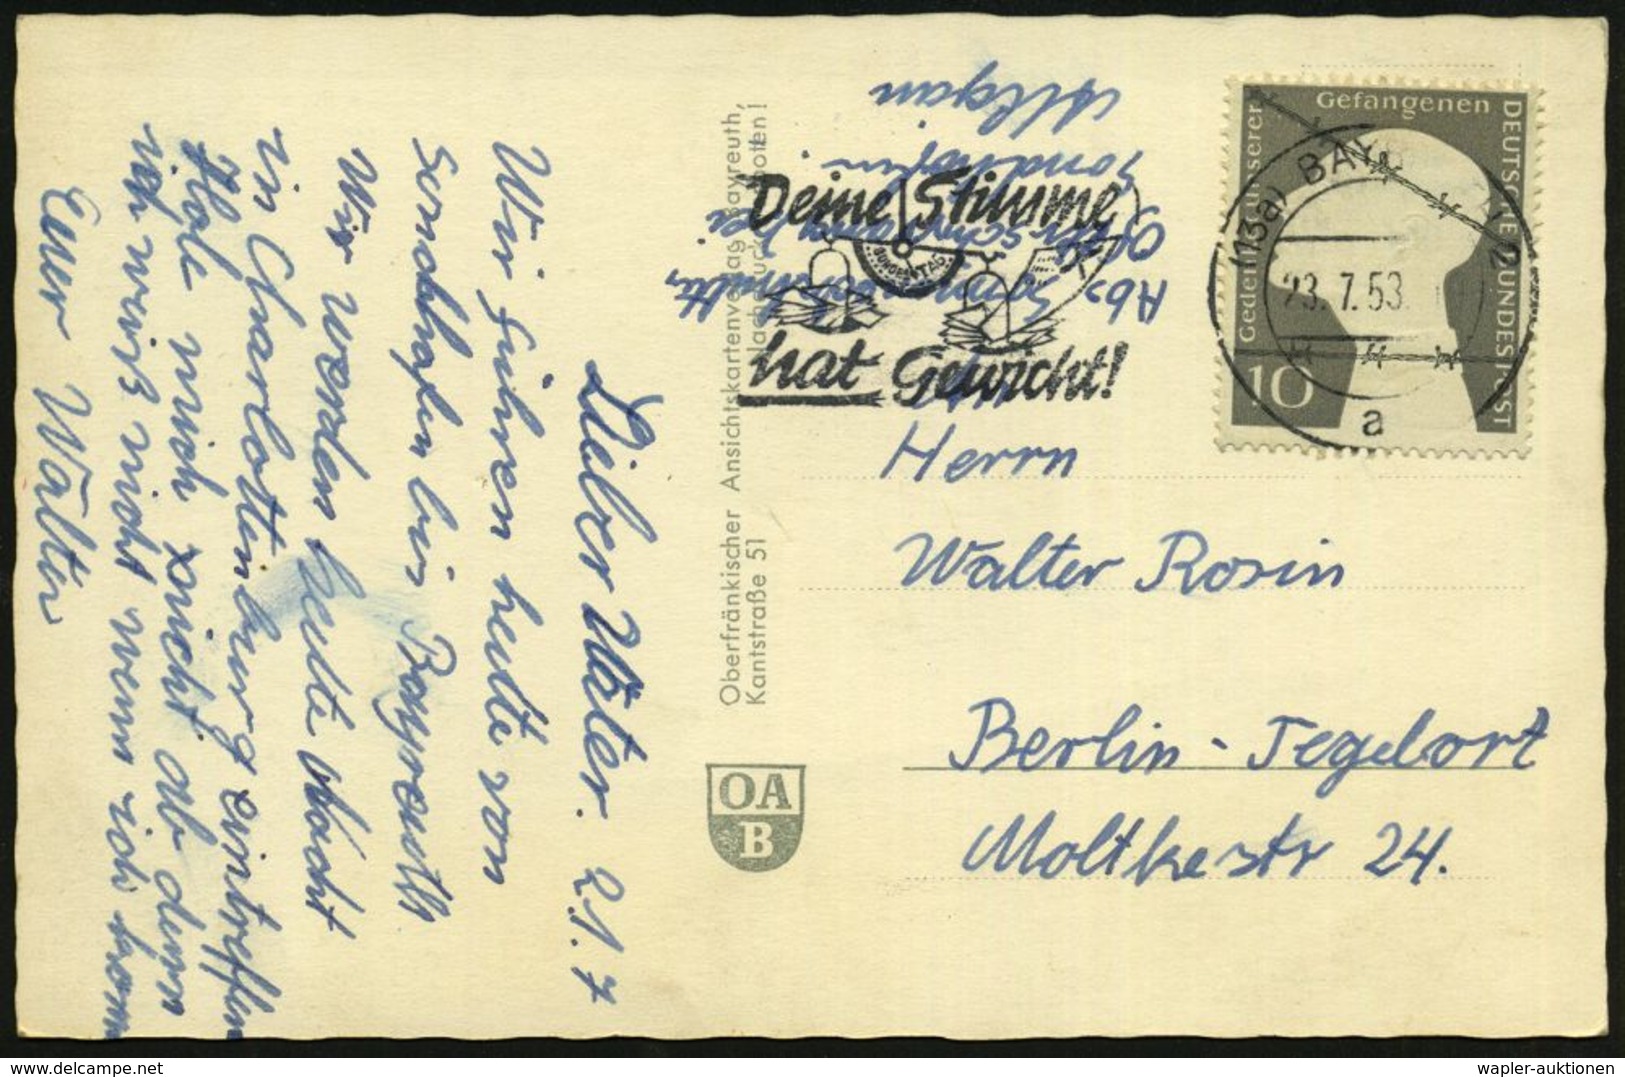 Lieber Vater. 21.7
Wir fuhren heute von
Sondhofen bis Bayreuth
Wir werden heute Nacht
in Charlottenburg eintreffen
Hole mich nicht ab denn
ich weiß nicht wenn ich komm
Euer Walter
Oberfränkischer Ansichtskartenverlag Bayreuth,
Kantstraße 51
OA
B
Deine Stimme
BUNDESTAG
hat Gewicht!
Abs.
Sondhofen
Allgäu
Gedenkt unserer
Gefangenen
DEUTSCHE BUNDESPOST
10
(13a) BAY 2
23.7.53
a
Herrn
Walter Rosin
Berlin-Tegelort
Moltkestr 24.
wapler-auktionen